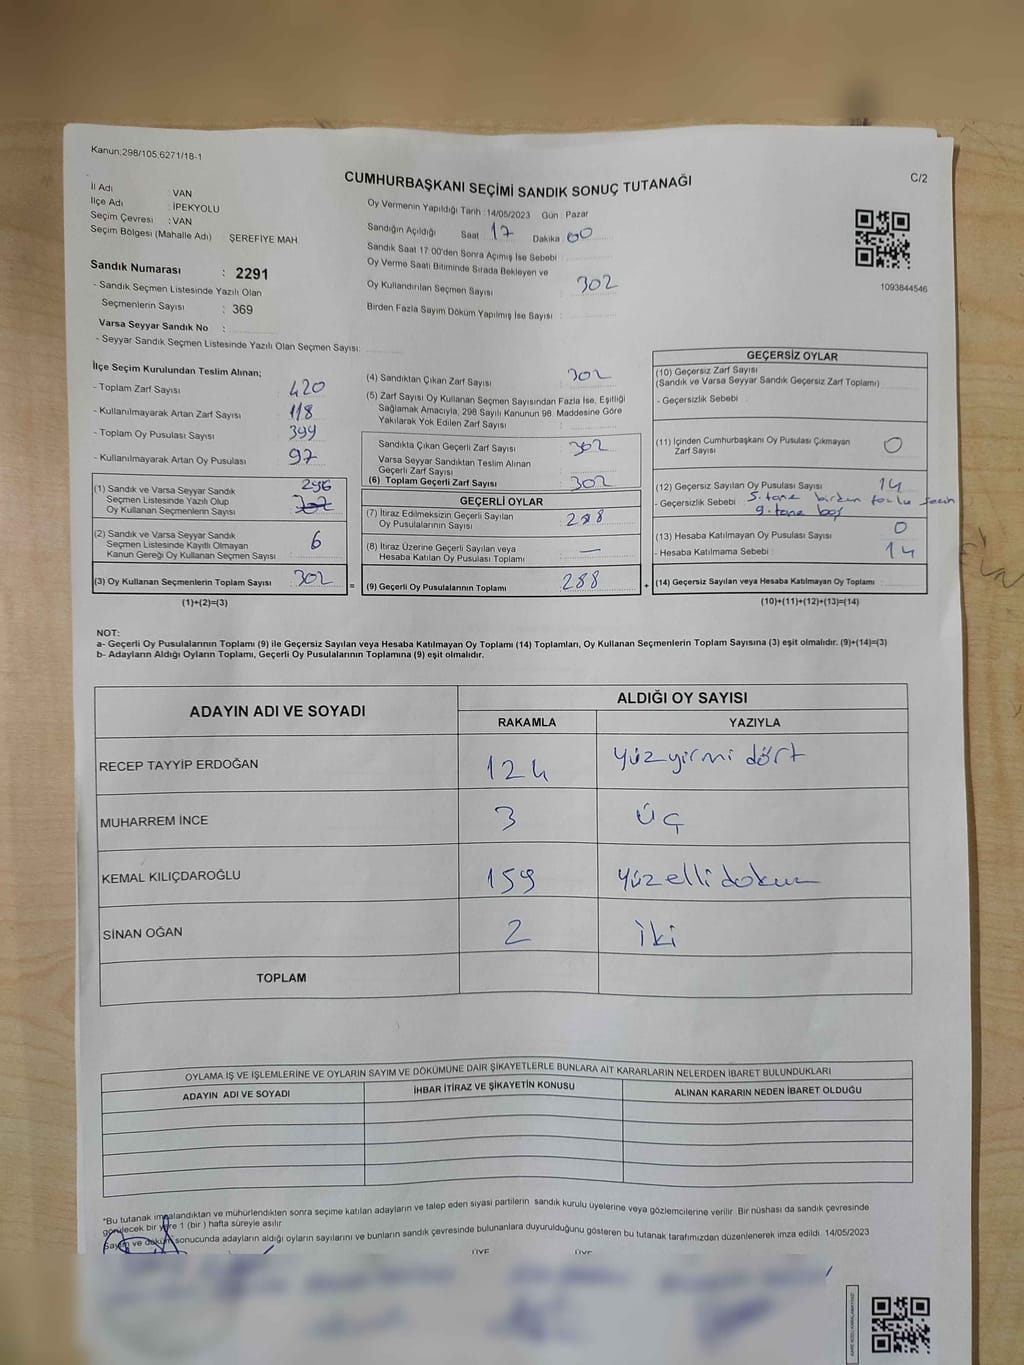 Kanun:298/105,6271/18-1
CUMHURBAŞKANI SEÇİMİ SANDIK SONUÇ TUTANAĞI
C/2
İl Adı : VAN
İlçe Adı : İPEKYOLU
Seçim Çevresi : VAN
Seçim Bölgesi (Mahalle Adı) ŞEREFİYE MAH
Sandık Numarası : 2291
- Sandık Seçmen Listesinde Yazılı Olan
Seçmenlerin Sayısı : 369
Varsa Seyyar Sandık No :
- Seyyar Sandık Seçmen Listesinde Yazılı Olan Seçmen Sayısı:
Oy Vermenin Yapıldığı Tarih :14/05/2023 Gün : Pazar
Sandığın Açıldığı Saat 17 Dakika 00
Sandık Saat 17 00'den Sonra Açımış İse Sebebi :
Oy Verme Saati Bitiminde Sırada Bekleyen ve
Oy Kullandırılan Seçmen Sayısı : 302
Birden Fazla Sayım Döküm Yapılmış İse Sayısı :
1093844546
İlçe Seçim Kurulundan Teslim Alınan;
- Toplam Zarf Sayısı : 420
- Kullanılmayarak Artan Zarf Sayısı : 118
- Toplam Oy Pusulası Sayısı : 399
- Kullanılmayarak Artan Oy Pusulası : 97
296
(1) Sandık ve Varsa Seyyar Sandık
Seçmen Listesinde Yazılı Olup
Oy Kullanan Seçmenlerin Sayısı : 302
(2) Sandık ve Varsa Seyyar Sandık
Seçmen Listesinde Kayıtlı Olmayan
Kanun Gereği Oy Kullanan Seçmen Sayısı : 6
(3) Oy Kullanan Seçmenlerin Toplam Sayısı : 302 =
(1)+(2)=(3)
(4) Sandıktan Çıkan Zarf Sayısı : 302
(5) Zarf Sayısı Oy Kullanan Seçmen Sayısından Fazla İse, Eşitliği
Sağlamak Amacıyla, 298 Sayılı Kanunun 98. Maddesine Göre
Yakılarak Yok Edilen Zarf Sayısı :
Sandıkta Çıkan Geçerli Zarf Sayısı : 302
Varsa Seyyar Sandıktan Teslim Alınan
Geçerli Zarf Sayısı :
(6) Toplam Geçerli Zarf Sayısı : 302
GEÇERLİ OYLAR
(7) İtiraz Edilmeksizin Geçerli Sayılan
Oy Pusulalarının Sayısı : 288
(8) İtiraz Üzerine Geçerli Sayılan veya
Hesaba Katılan Oy Pusulası Toplamı : —
(9) Geçerli Oy Pusulalarının Toplamı : 288 +
GEÇERSİZ OYLAR
(10) Geçersiz Zarf Sayısı
(Sandık ve Varsa Seyyar Sandık Geçersiz Zarf Toplamı) :
- Geçersizlik Sebebi :
(11) İçinden Cumhurbaşkanı Oy Pusulası Çıkmayan
Zarf Sayısı : 0
(12) Geçersiz Sayılan Oy Pusulası Sayısı : 14
- Geçersizlik Sebebi 5. tane birden fazla
9. tane boş
(13) Hesaba Katılmayan Oy Pusulası Sayısı : 0
- Hesaba Katılmama Sebebi : 14
(14) Geçersiz Sayılan veya Hesaba Katılmayan Oy Toplamı :
(10)+(11)+(12)+(13)=(14)
NOT:
a- Geçerli Oy Pusulalarının Toplamı (9) ile Geçersiz Sayılan veya Hesaba Katılmayan Oy Toplamı (14) Toplamları, Oy Kullanan Seçmenlerin Toplam Sayısına (3) eşit olmalıdır. (9)+(14)=(3)
b- Adayların Aldığı Oyların Toplamı, Geçerli Oy Pusulalarının Toplamına (9) eşit olmalıdır.
ADAYIN ADI VE SOYADI ALDIĞI OY SAYISI
RAKAMLA YAZIYLA
RECEP TAYYİP ERDOĞAN 124 yüzyirmi dört
MUHARREM İNCE 3 üç
KEMAL KILIÇDAROĞLU 159 yüzellidokuz
SİNAN OĞAN 2 iki
TOPLAM
OYLAMA İŞ VE İŞLEMLERİNE VE OYLARIN SAYIM VE DÖKÜMÜNE DAİR ŞİKAYETLERLE BUNLARA AİT KARARLARIN NELERDEN İBARET BULUNDUKLARI
ADAYIN ADI VE SOYADI İHBAR İTİRAZ VE ŞİKAYETİN KONUSU ALINAN KARARIN NEDEN İBARET OLDUĞU
*Bu tutanak imzalandıktan ve mühürlendikten sonra seçime katılan adayların ve talep eden siyasi partilerin sandık kurulu üyelerine veya gözlemcilerine verilir Bir nüshası da sandık çevresinde
görülecek bir yere 1 (bir) hafta süreyle asılır
Sayım ve döküm sonucunda adayların aldığı oyların sayılarını ve bunların sandık çevresinde bulunanlara duyurulduğunu gösteren bu tutanak tarafımızdan düzenlenerek imza edildi. 14/05/2023
ÜYE ÜYE